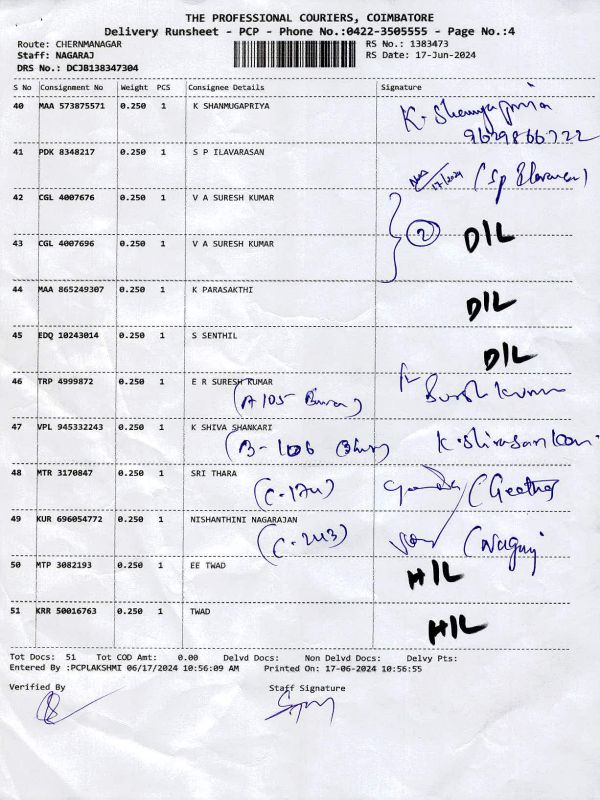 THE PROFESSIONAL COURIERS, COIMBATORE
Delivery Runsheet - PCP - Phone No.:0422-3505555 - Page No.:4
Route: CHERNMANAGAR RS No.: 1383473
Staff: NAGARAJ RS Date: 17-Jun-2024
DRS No.: DCJB138347304
S No Consignment No Weight PCS Consignee Details Signature
40 MAA 573875571 0.250 1 K SHANMUGAPRIYA K. Shanmugapriya
9629866722
41 PDK 8348217 0.250 1 S P ILAVARASAN 17/2024 (Sp Elavarasan)
42 CGL 4007676 0.250 1 V A SURESH KUMAR
2
43 CGL 4007696 0.250 1 V A SURESH KUMAR D/L
44 MAA 865249307 0.250 1 K PARASAKTHI D/L
45 EDQ 10243014 0.250 1 S SENTHIL D/L
46 TRP 4999872 0.250 1 E R SURESH KUMAR Suresh kumar
(A105
47 VPL 945332243 0.250 1 K SHIVA SHANKARI K. Shivasankari
(B-106
48 MTR 3170847 0.250 1 SRI THARA (Geetha
(C-174)
49 KUR 696054772 0.250 1 NISHANTHINI NAGARAJAN (Nagaraj
(C-243)
50 MTP 3082193 0.250 1 EE TWAD H/L
51 KRR 50016763 0.250 1 TWAD H/L
Tot Docs: 51 Tot COD Amt: 0.00 Delvd Docs: Non Delvd Docs: Delvy Pts:
Entered By :PCPLAKSHMI 06/17/2024 10:56:09 AM Printed On: 17-06-2024 10:56:55
Verified By Staff Signature